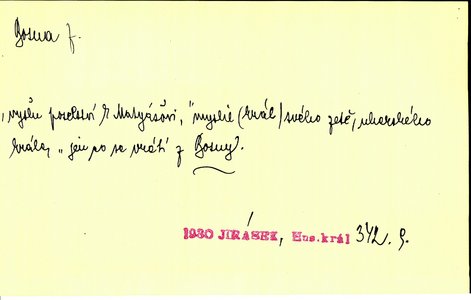 Bosna f.
„vyšlu poselství k Matyášovi," myslil (král) svého zetě, uherského
krále, „jen co se vrátí z Bosny".
1930 JIRÁSEK, Hus.král 342. 9.